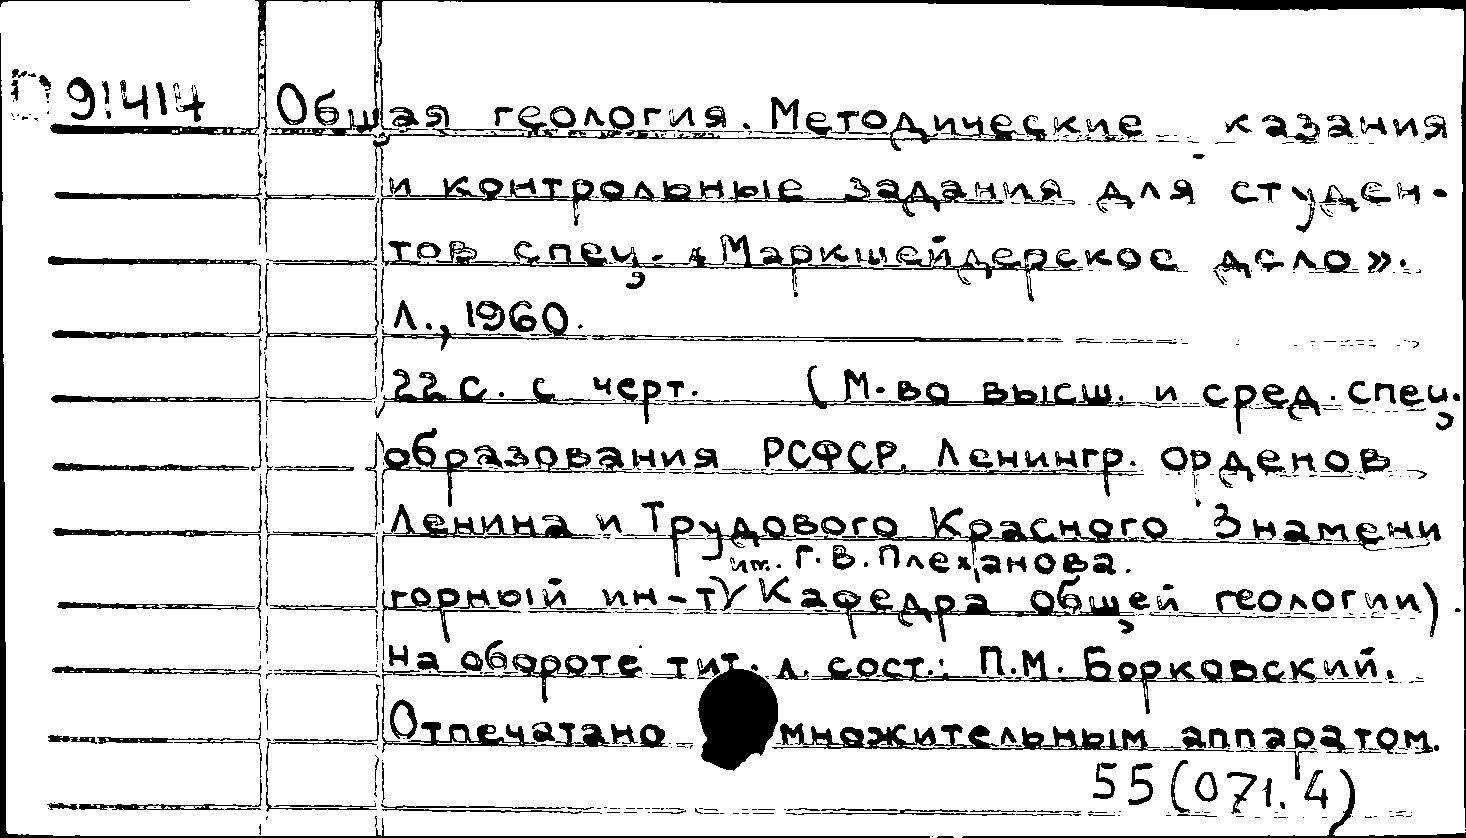 П 9!414 Общая геология. Методические казания
и контрольные задания для студен-
тов спец. «Маркшейдерское дело».
Л., 1960.
22 с. с черт. (М-во высш. и сред. спец.
образования РСФСР. Ленингр. орденов
Ленина и Трудового Красного Знамени
им. Г.В. Плеханова.
горный ин-т) Кафедра общей геологии).
На обороте тит. л. сост.: П.М. Борковский.
Отпечатано множительным аппаратом.
55(071.4)